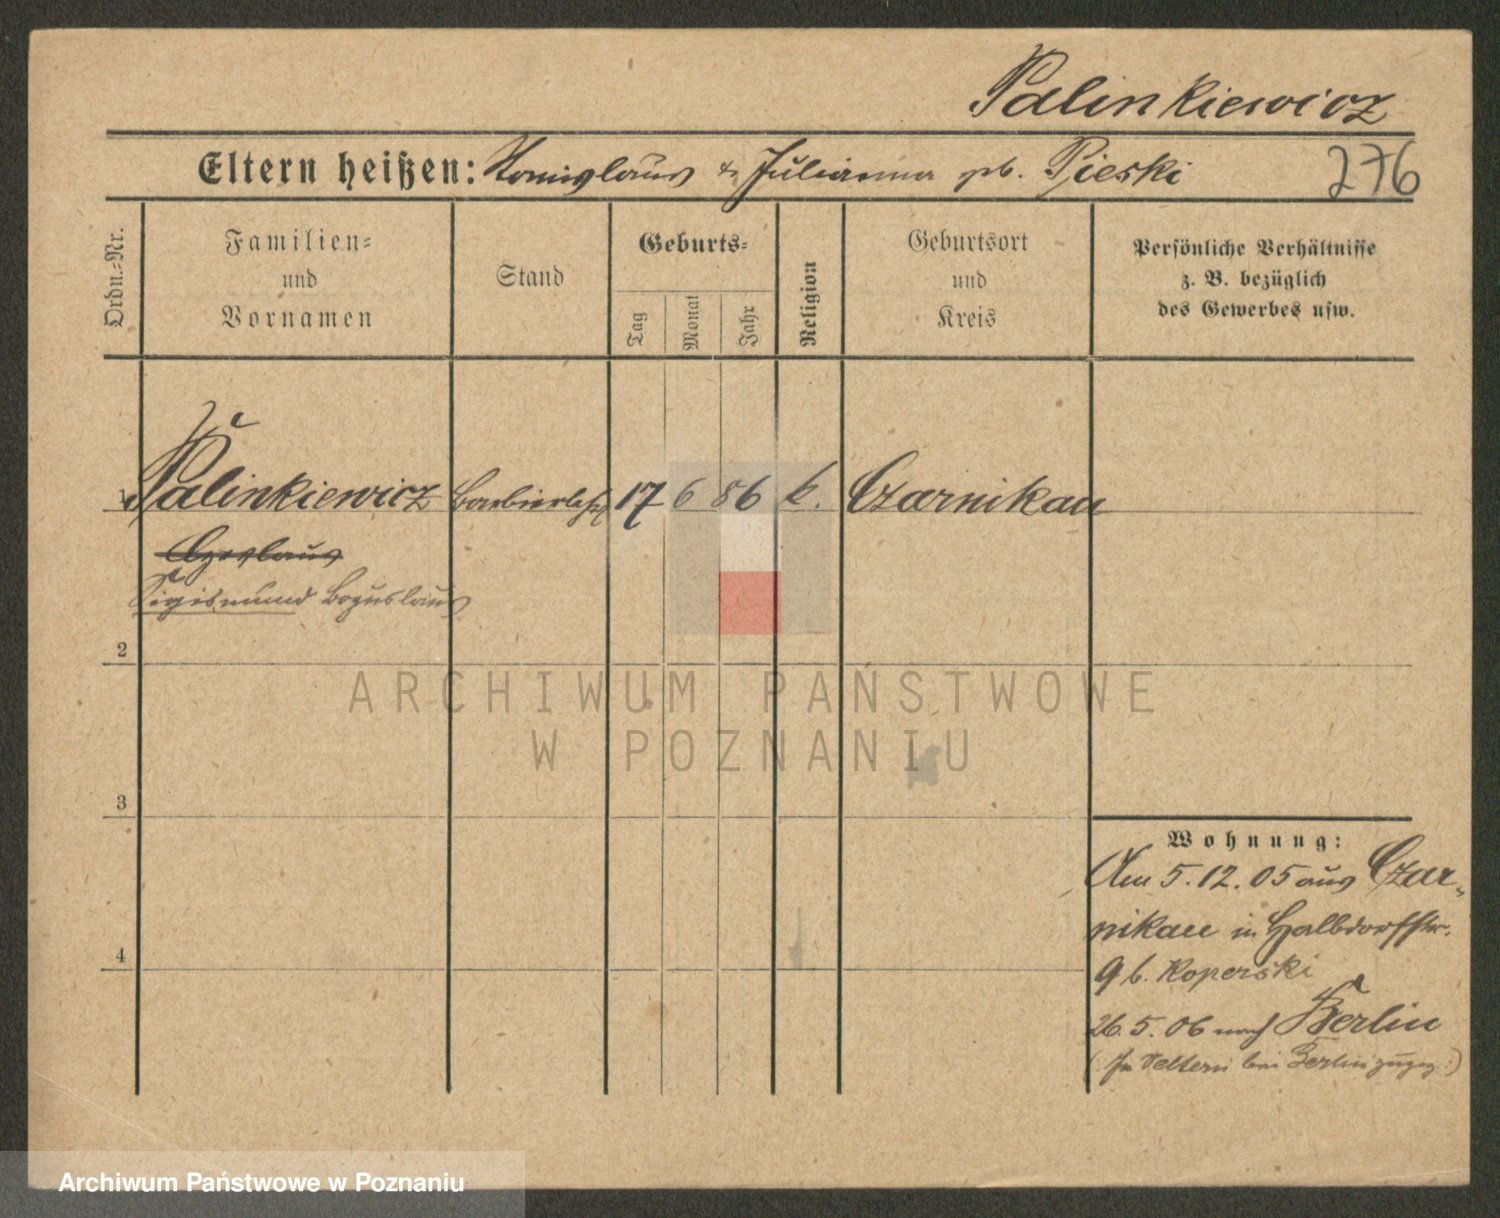 Palinkiewicz
Eltern heißen: Stanislaus & Julianna gb. Pieski
276
Ordn.-Nr.
Familien-
und
Vornamen
Stand
Geburts-
Tag
Monat
Jahr
Religion
Geburtsort
und
Kreis
Persönliche Verhältnisse
z. B. bezüglich
des Gewerbes usw.
1 Palinkiewicz Barbierlehrl 17 6 86 k. Czarnikau
Czeslaus
Sigismund Boguslaus
2
3
4
Wohnung:
Am 5.12.05 aus Czar-
nikau in Halbdorfstr.
9 b. Koperski
26.5.06 nach Berlin
(: In Veltern bei Berlin zugez. :)
ARCHIWUM PAŃSTWOWE
W POZNANIU
Archiwum Państwowe w Poznaniu